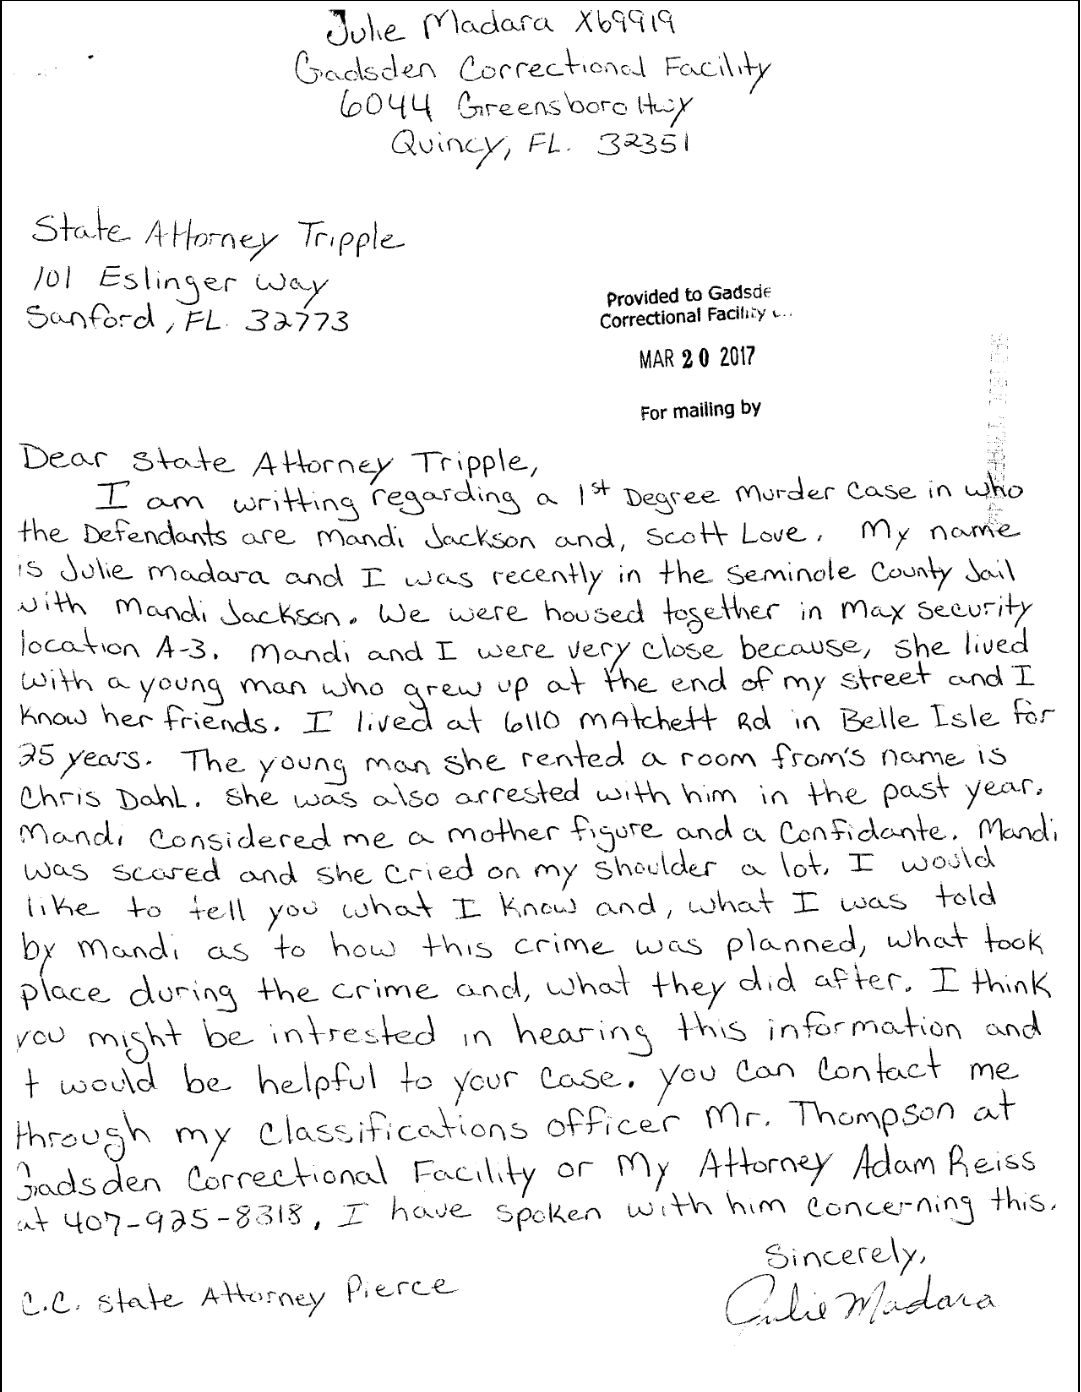 Julie Madara X69919
Gadsden Correctional Facility
6044 Greensboro Hwy
Quincy, FL. 32351
State Attorney Tripple
101 Eslinger Way
Sanford, FL. 32773
Provided to Gadsde
Correctional Facility
MAR 20 2017
For mailing by
Dear State Attorney Tripple,
I am writting regarding a 1st Degree Murder Case in who
the Defendants are Mandi Jackson and, Scott Love. My name
is Julie Madara and I was recently in the Seminole County Jail
with Mandi Jackson. We were housed together in Max Security
location A-3. Mandi and I were very close because, she lived
with a young man who grew up at the end of my street and I
know her friends. I lived at 6110 MAtchett Rd in Belle Isle for
25 years. The young man she rented a room from's name is
Chris Dahl. She was also arrested with him in the past year.
Mandi considered me a mother figure and a Confidante. Mandi
was scared and she cried on my shoulder a lot. I would
like to tell you what I know and, what I was told
by Mandi as to how this crime was planned, what took
place during the crime and, what they did after. I think
you might be intrested in hearing this information and
t would be helpful to your case. You can contact me
through my Classifications officer Mr. Thompson at
Gadsden Correctional Facility or My Attorney Adam Reiss
at 407-925-8318. I have spoken with him concerning this.
Sincerely,
C.C. State Attorney Pierce
Julie Madara